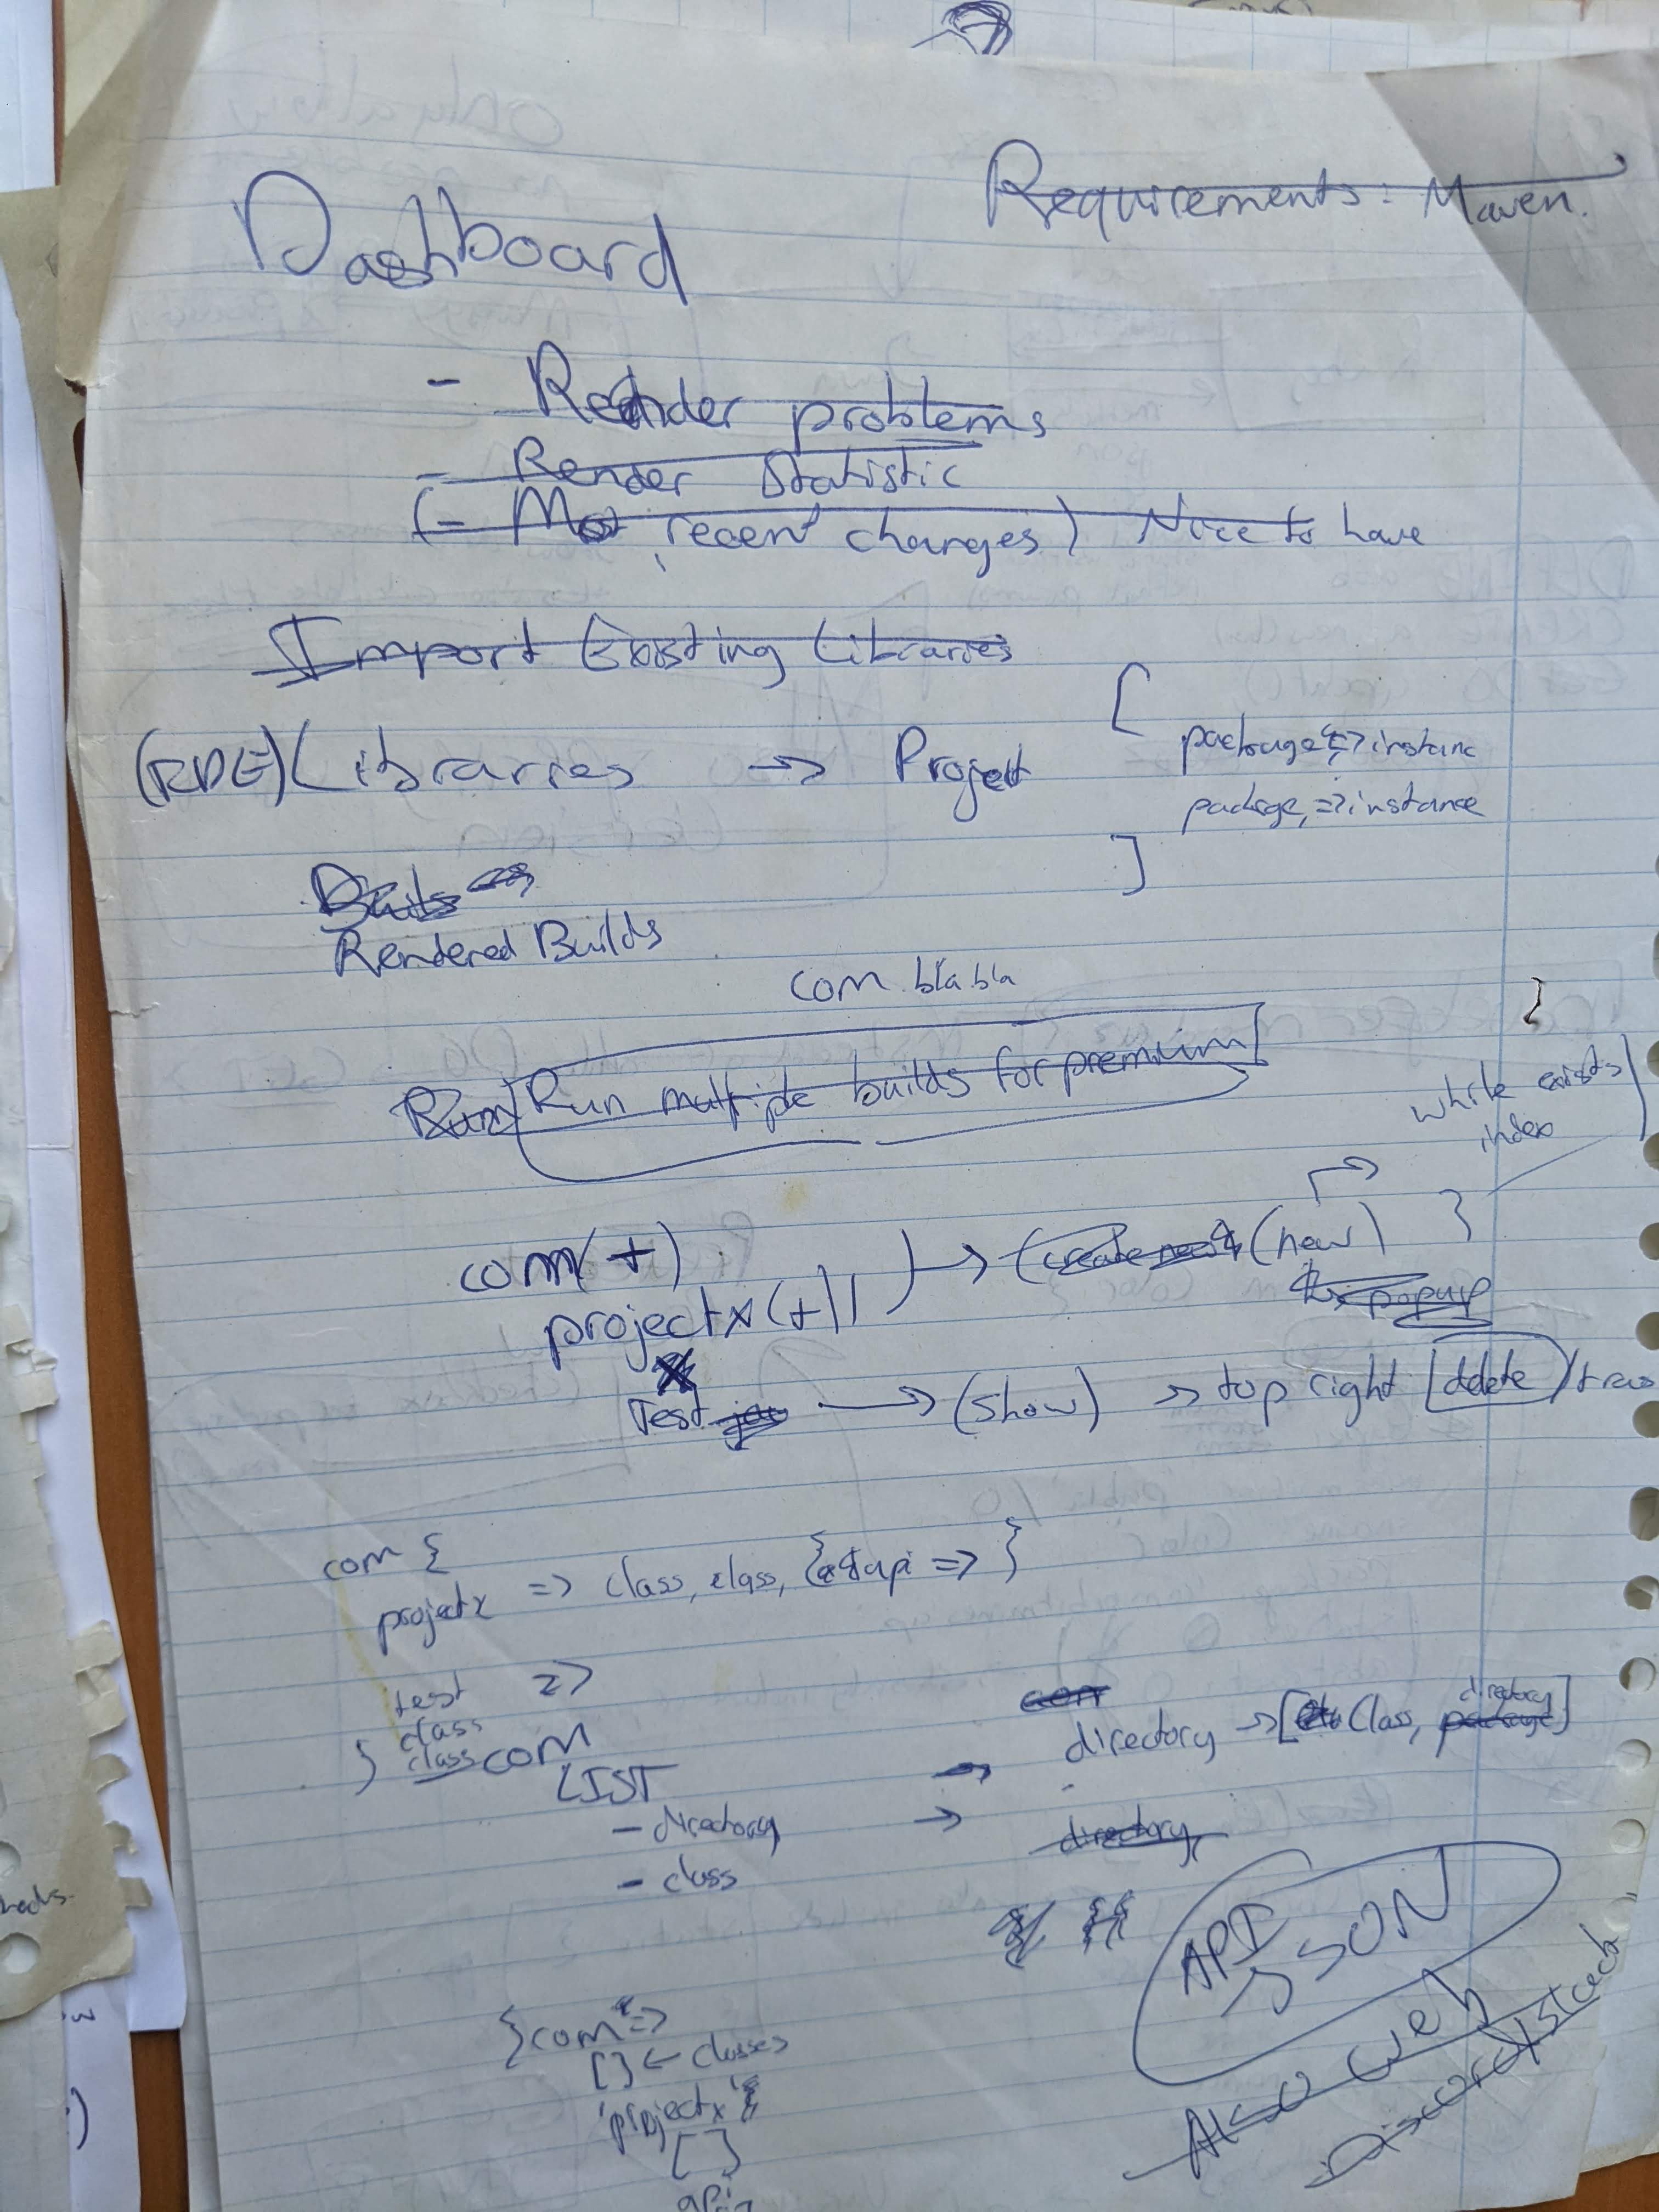 Requirements: Maven.
Dashboard
- Render problems
- Render Statistic
(- Most recent changes) Nice to have
Import Existing Libraries
(RDE) Libraries -> Project [
package => instanc
package, => instance
]
Rendered Builds
com.blabla
}
Run Run multiple builds for premium
while exists
index
com(+)
projectx(+)
-> (create new) (new) }
popup
Test -> (show) -> top right [delete]/
com {
projectx => class, class, { api => }
test =>
class
} class
com
LIST
- directory ->
- class
com
directory -> [ Class, directory package]
directory,
API
JSON
Also web
Discord/
{com =>
[] <- classes
'projectx'
[]
api